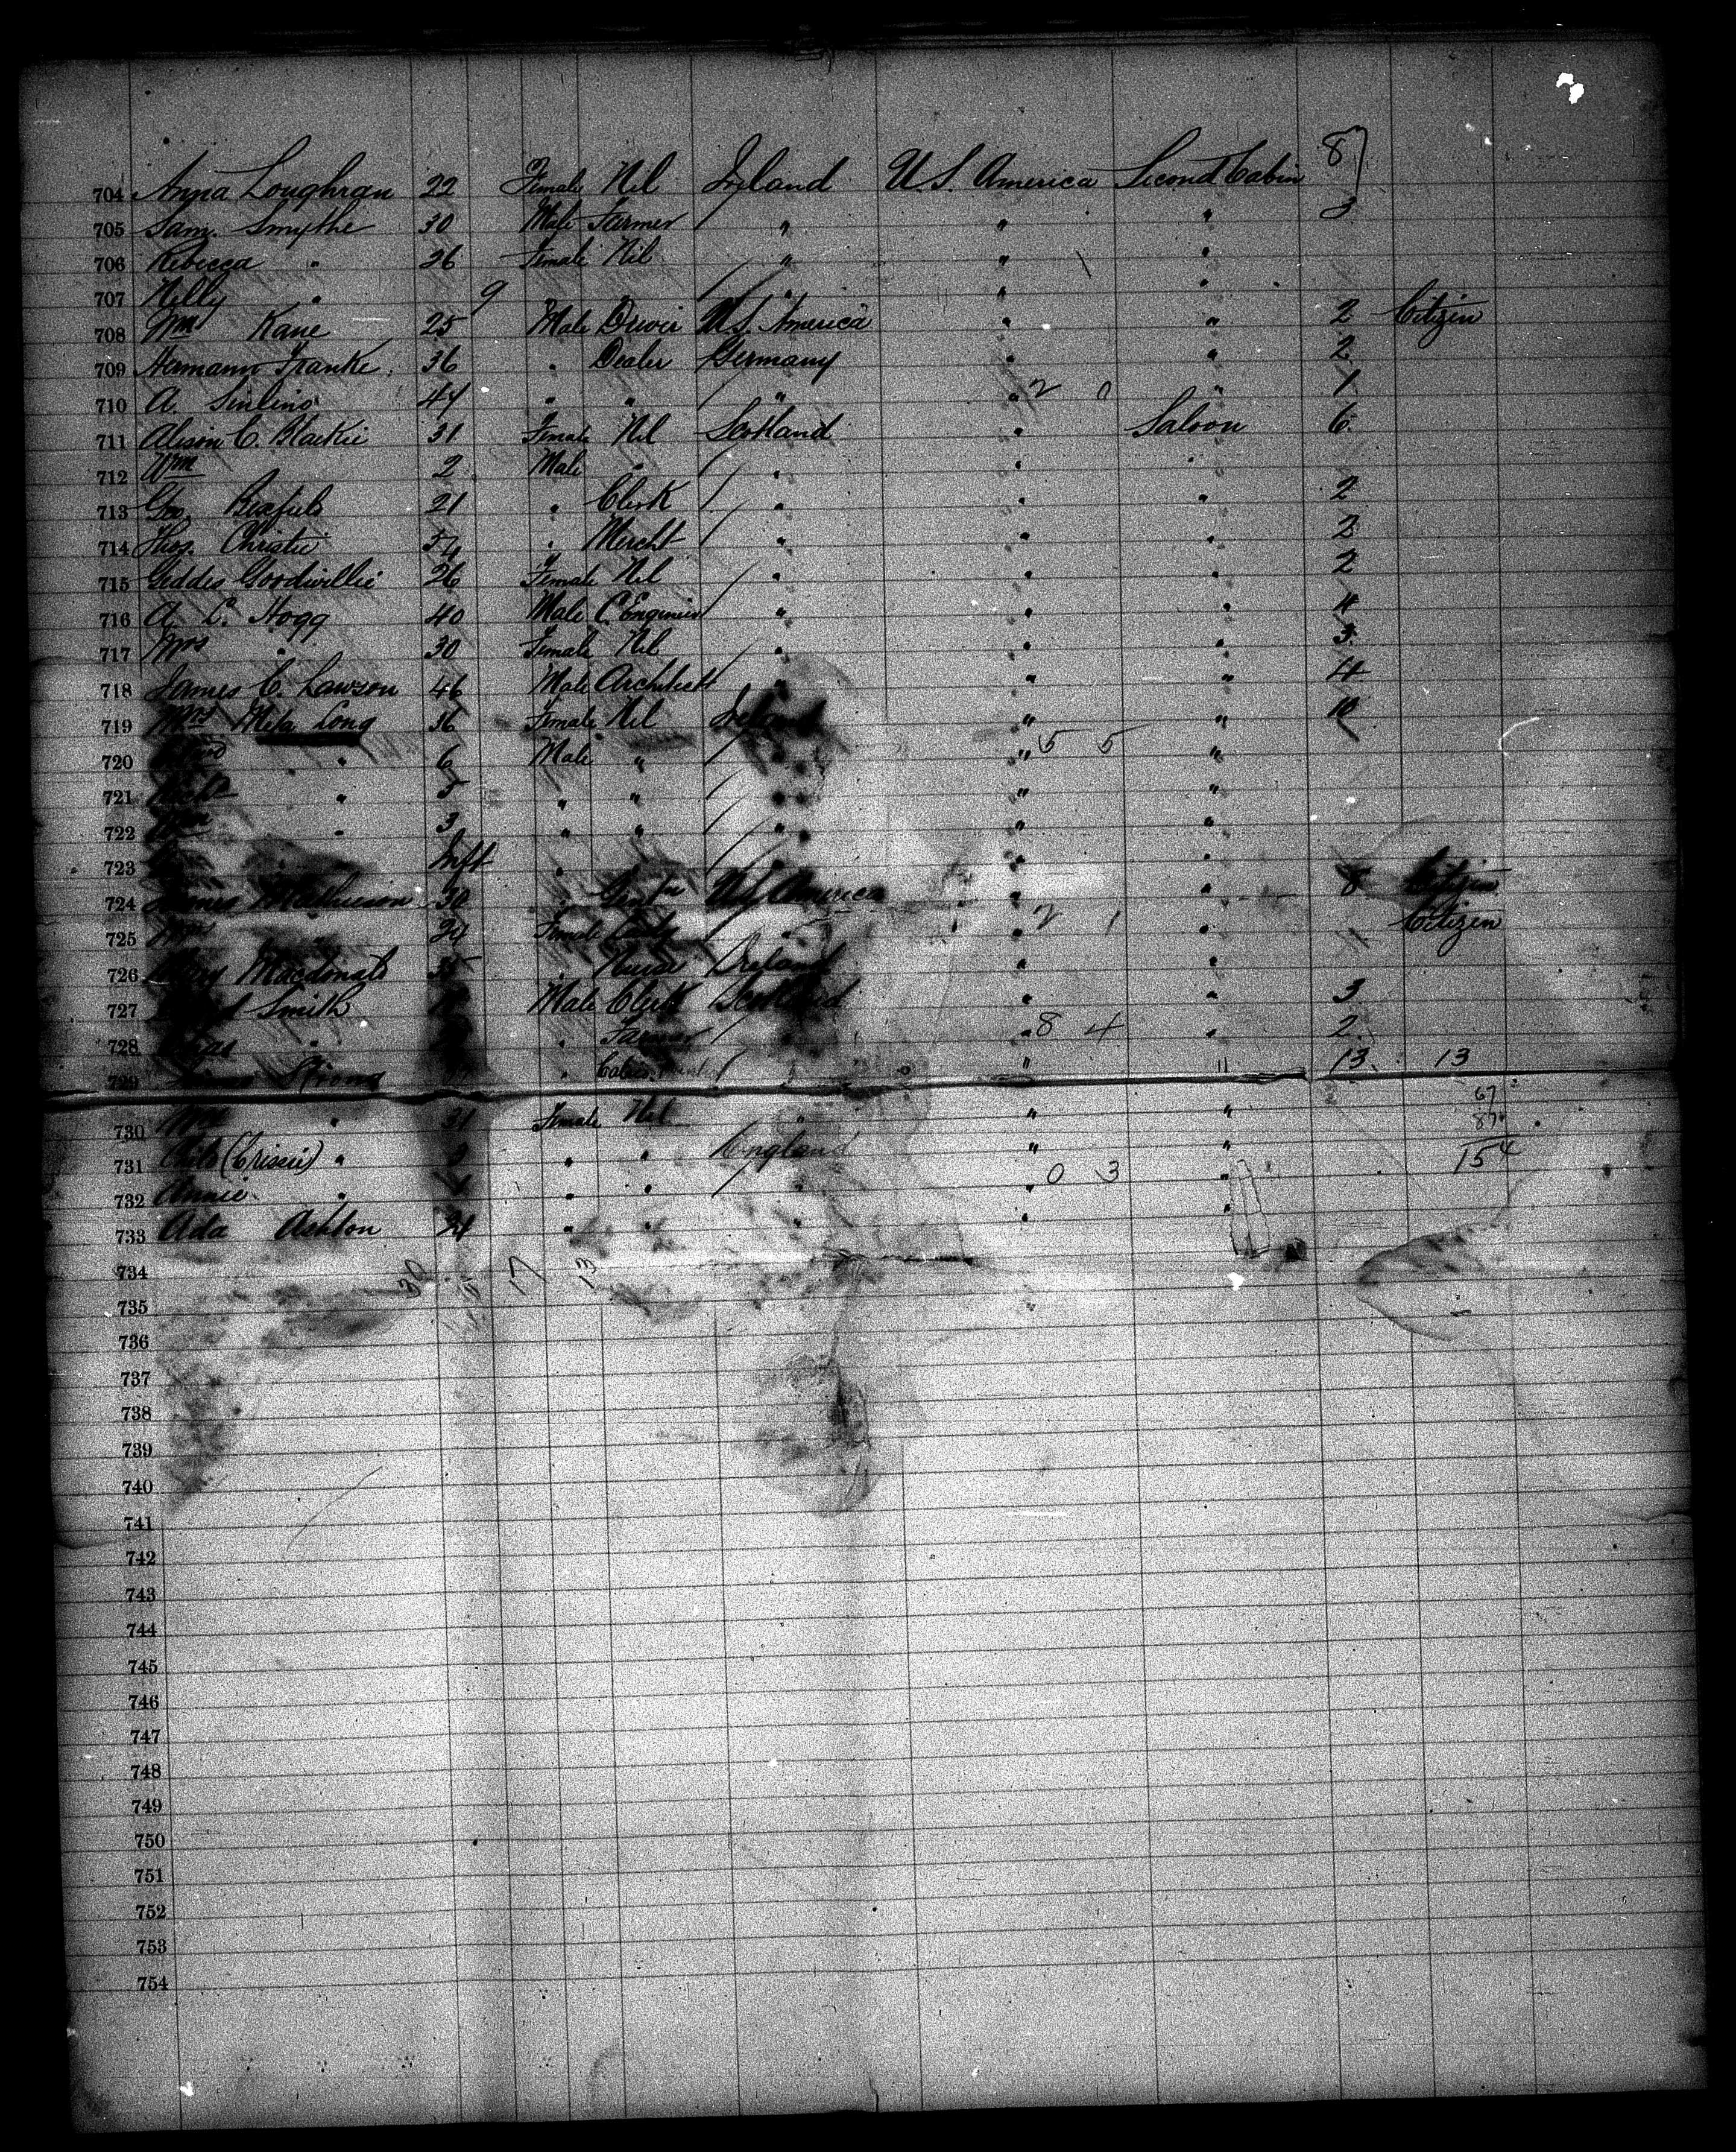 8
704 Anna Loughran 22 Female Nil Ireland U.S. America Second Cabin
705 Sam. Smythe 30 Male Farmer " " " 3
706 Rebecca " 26 Female Nil " " "
707 Nelly " 9 " " "
708 Wm Kane 25 Male Driver U.S. America " " 2 Citizen
709 Hermann Franke 36 " Dealer Germany " " 2
710 A. 44 " " " " 2 0 " 1
711 Alison C. Blackie 31 Female Nil Scotland " Saloon 6
712 Wm 2 Male " " " "
713 Geo. 21 " Clerk " " " 2
714 Thos. Christie 54 " Mercht " " " 2
715 Geddes Goodwillie 26 Female Nil " " " 2
716 A. C. Hogg 40 Male C. Engineer " " " 4
717 Mrs " 30 Female Nil " " " 3
718 James C. Lawson 46 Male Architect " " " 4
719 Mrs Meta Long 36 Female Nil Ireland " " 10
720 " 6 Male " " " 5 5 "
721 " 5 " " " " "
722 Wm " 3 " " " " "
723 " Inft " " " "
724 30 " Gentn U.S. America " " 8 Citizen
725 Mrs Female Lady " " 2 1 " Citizen
726 Macdonald 35 " Nurse Ireland " "
727 Smith Male Clerk Scotland " " 3
728 " " Farmer " " 8 4 " 2
729 Strong " " " 13 13
730 Mrs " 31 Female Nil " " " 67
87
731 " " " England " " 154
732 Annie " " " " " 0 3 "
733 Ada Ashton 24 " " " " "
734 30 17 13
735
736
737
738
739
740
741
742
743
744
745
746
747
748
749
750
751
752
753
754